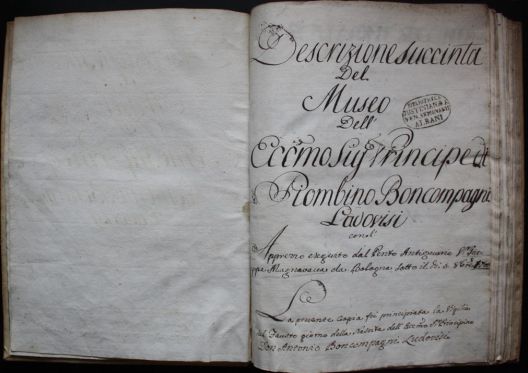 Descrizione succinta
Del
Museo
Dell'
Ecc̃mo Sig.r Principe di
Piombino Boncompagni
Ludovisi
con l'
Apprezzo eseguito dal Perito Antiquario
Mugnavacca da Bologna sotto il dì
BIBLIOTHECA
ALBANI
La presente Copia fù principiata la Vigilia
del Fausto giorno della Nascita dell' Ecc̃mo Principino
Don Antonio Boncompagni Ludovisi